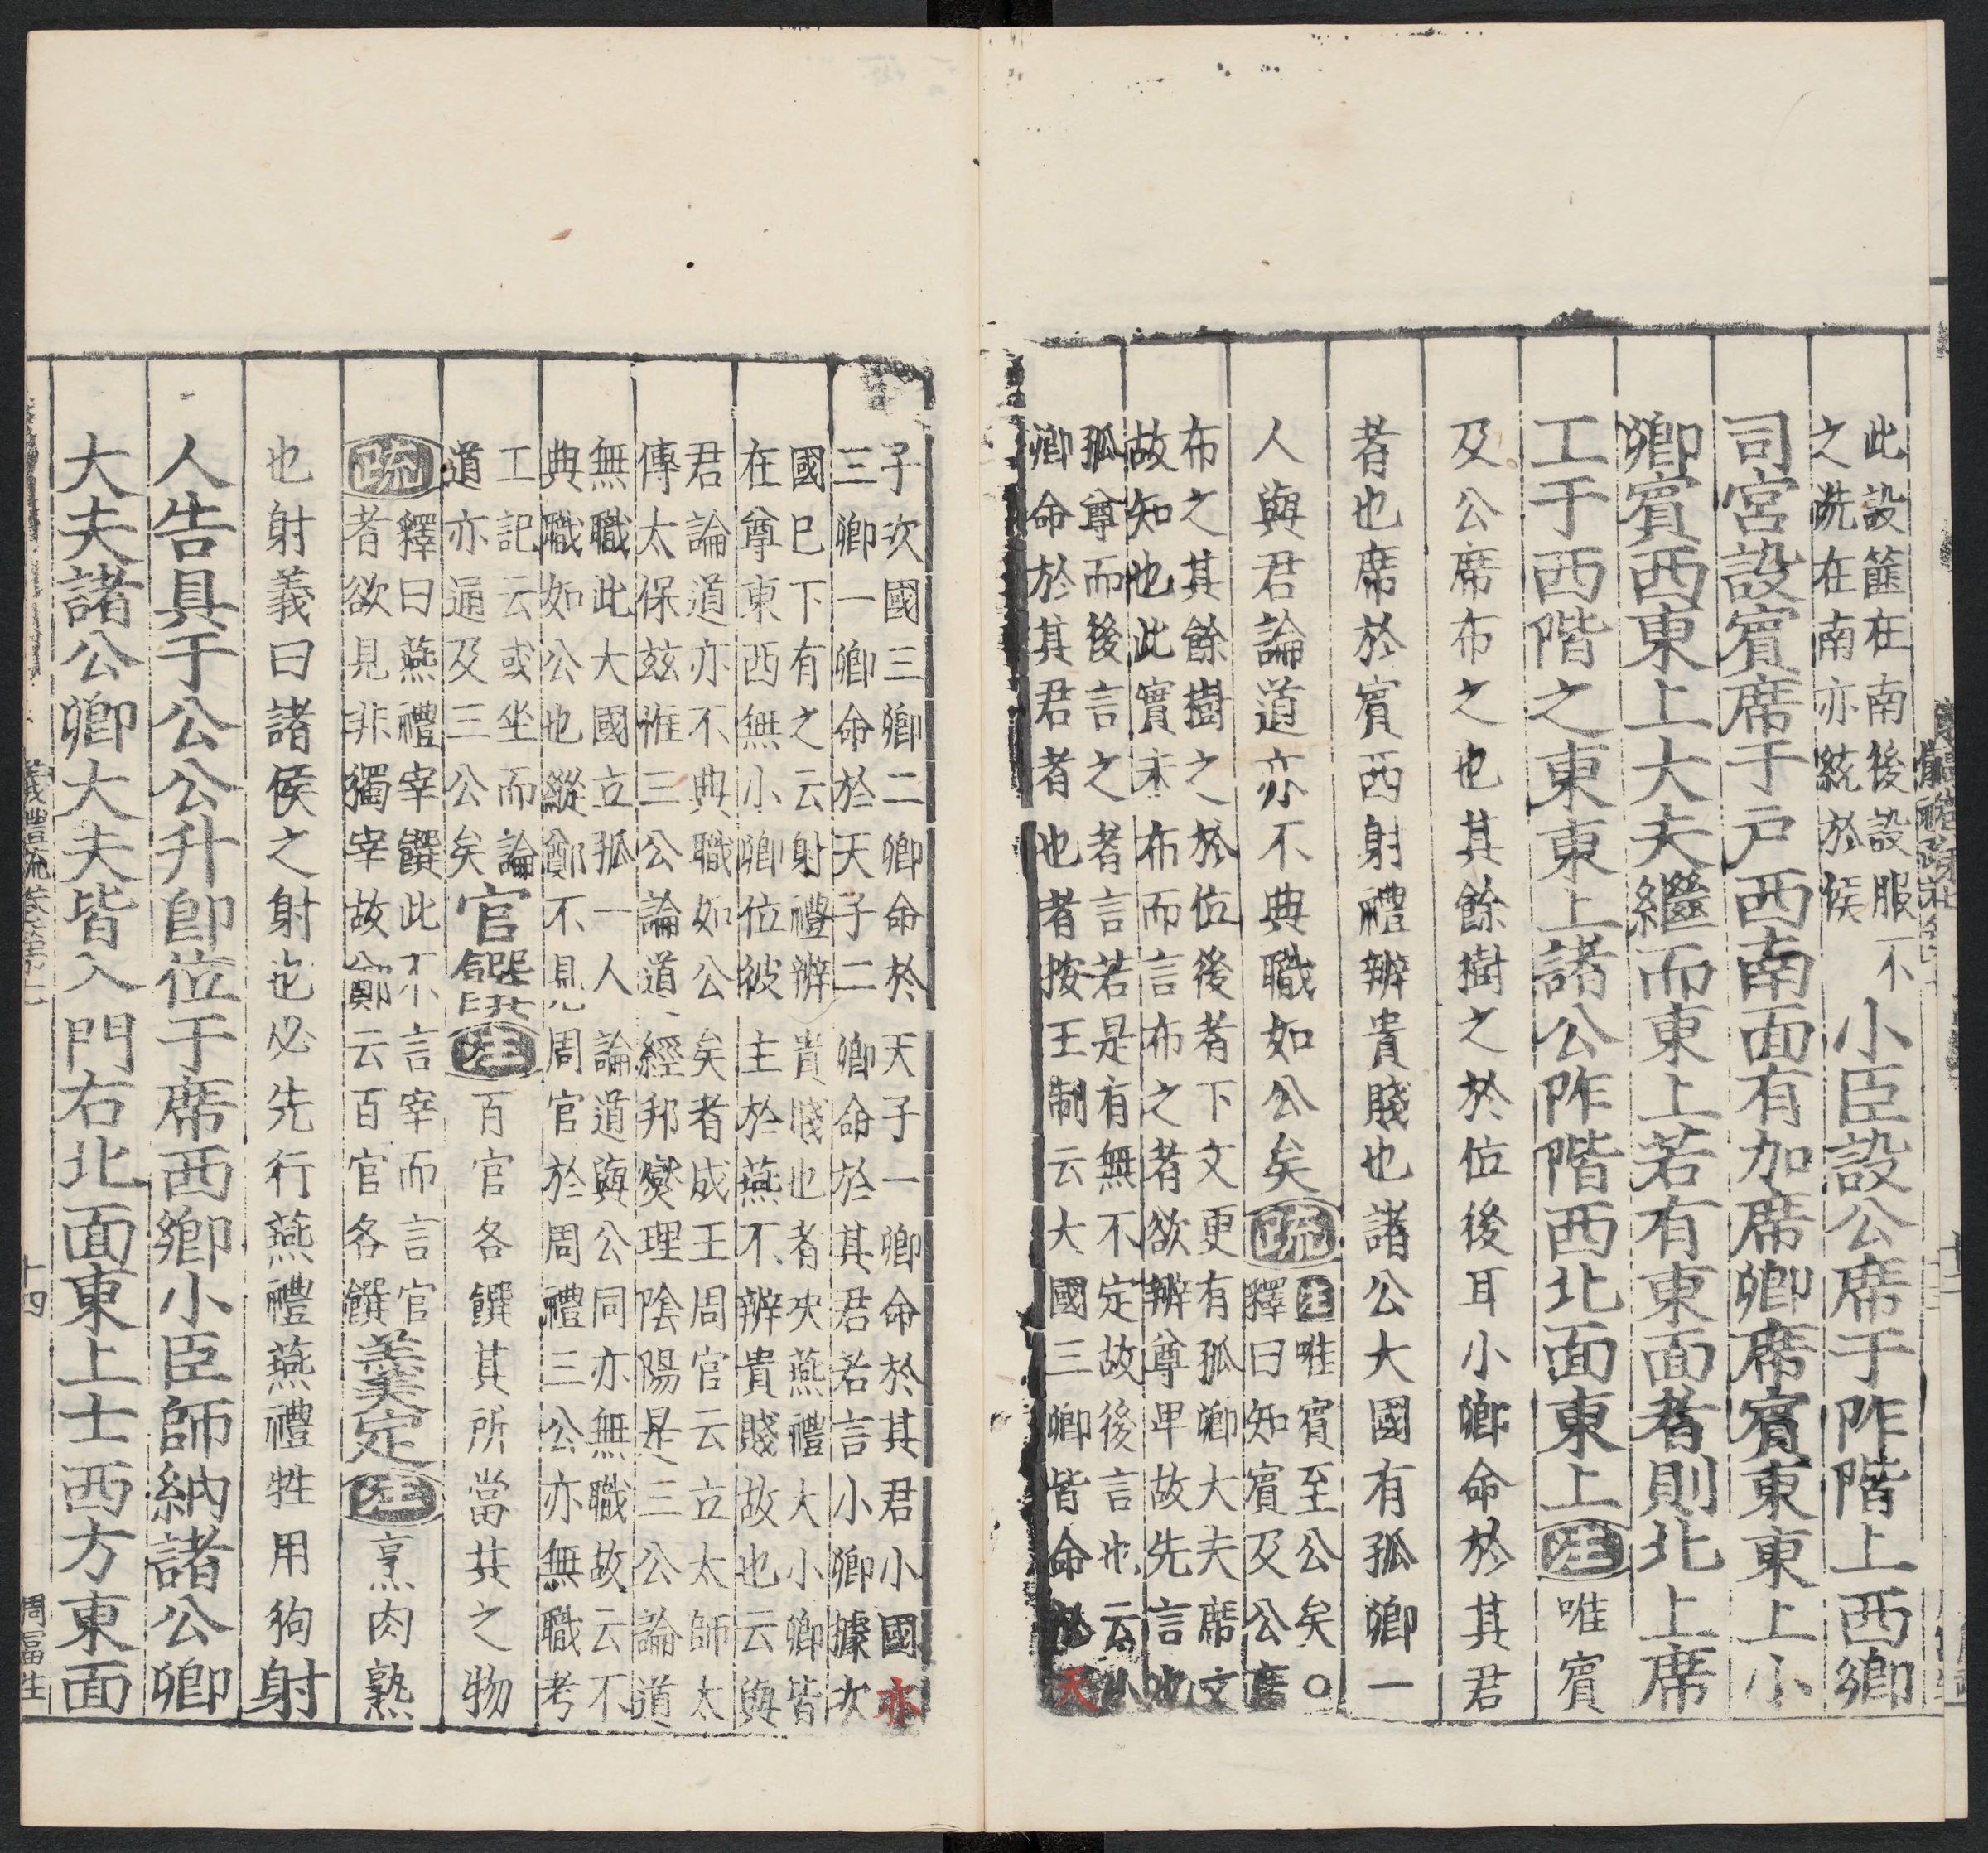 此設篚在南後設服不
之洗在南亦統於侯
小臣設公席于阼階上西鄉
司宮設賓席于戶西南面有加席卿席賓東東上小
卿賓西東上大夫繼而東上若有東面者則北上席
工于西階之東東上諸公阼階西北面東上
注
唯賓
及公席布之也其餘樹之於位後耳小卿命於其君
者也席於賓西射禮辨貴賤也諸公大國有孤卿一
人與君論道亦不典職如公矣
疏
注唯賓至公矣○
釋曰知賓及公席
布之其餘樹之於位後者下文更有孤卿大夫席文
故知也此實未布而言布之者欲辨尊卑故先言也
孤尊而後言之者言若是有無不定故後言也云小
卿命於其君者也者按王制云大國三卿皆命於天
子次國三卿二卿命於天子一卿命於其君小國亦
三卿一卿命於天子二卿命於其君若言小卿據次
國已下有之云射禮辨貴賤也者决燕禮大小卿皆
在尊東西無小卿位彼主於燕不辨貴賤故也云與
君論道亦不典職如公矣者成王周官云立太師太
傳太保玆惟三公論道經邦爕理陰陽是三公論道
無職此大國立孤一人論道與公同亦無職故云不
典職如公也縱鄭不見周官於周禮三公亦無職考
工記云或坐而論
道亦通及三公矣
官饌
注
百官各饌其所當共之物
疏
釋曰燕禮宰饌此不言宰而言官
者欲見非獨宰故鄭云百官各饌
羹定
注
烹肉熟
也射義曰諸侯之射也必先行燕禮燕禮牲用狗
射
人告具于公公升卽位于席西鄉小臣師納諸公卿
大夫諸公卿大夫皆入門右北面東上士西方東面
儀禮疏卷第七
十四
周富生